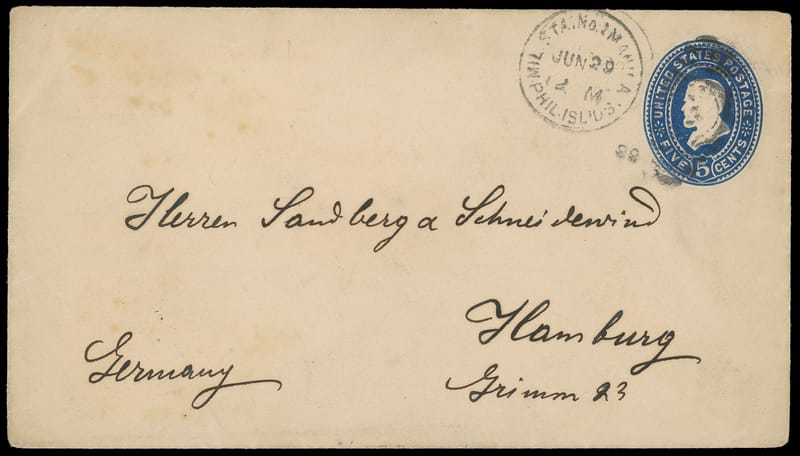 MIL. STA. No. 1 MANILA
JUN 29
12 M
PHIL. ISL'DS.
UNITED STATES POSTAGE
FIVE 5 CENTS
Herren Sandberg & Schneidewind
Hamburg
Germany
Grimm 23